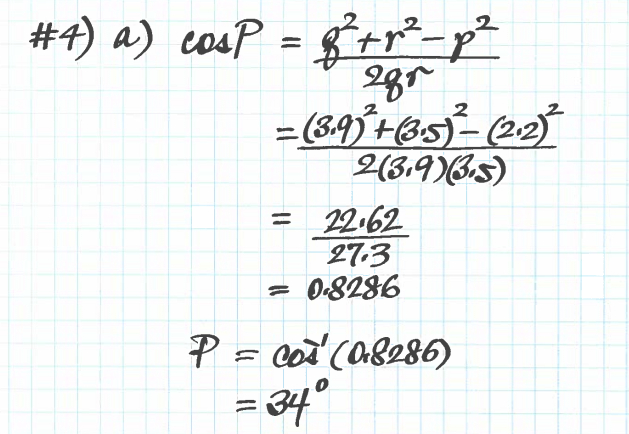 #4) a) cosP = q²+r²−p² / 2qr
= (3.9)²+(3.5)²−(2.2)² / 2(3.9)(3.5)
= 22.62 / 27.3
= 0.8286
P = cos⁻¹(0.8286)
= 34°